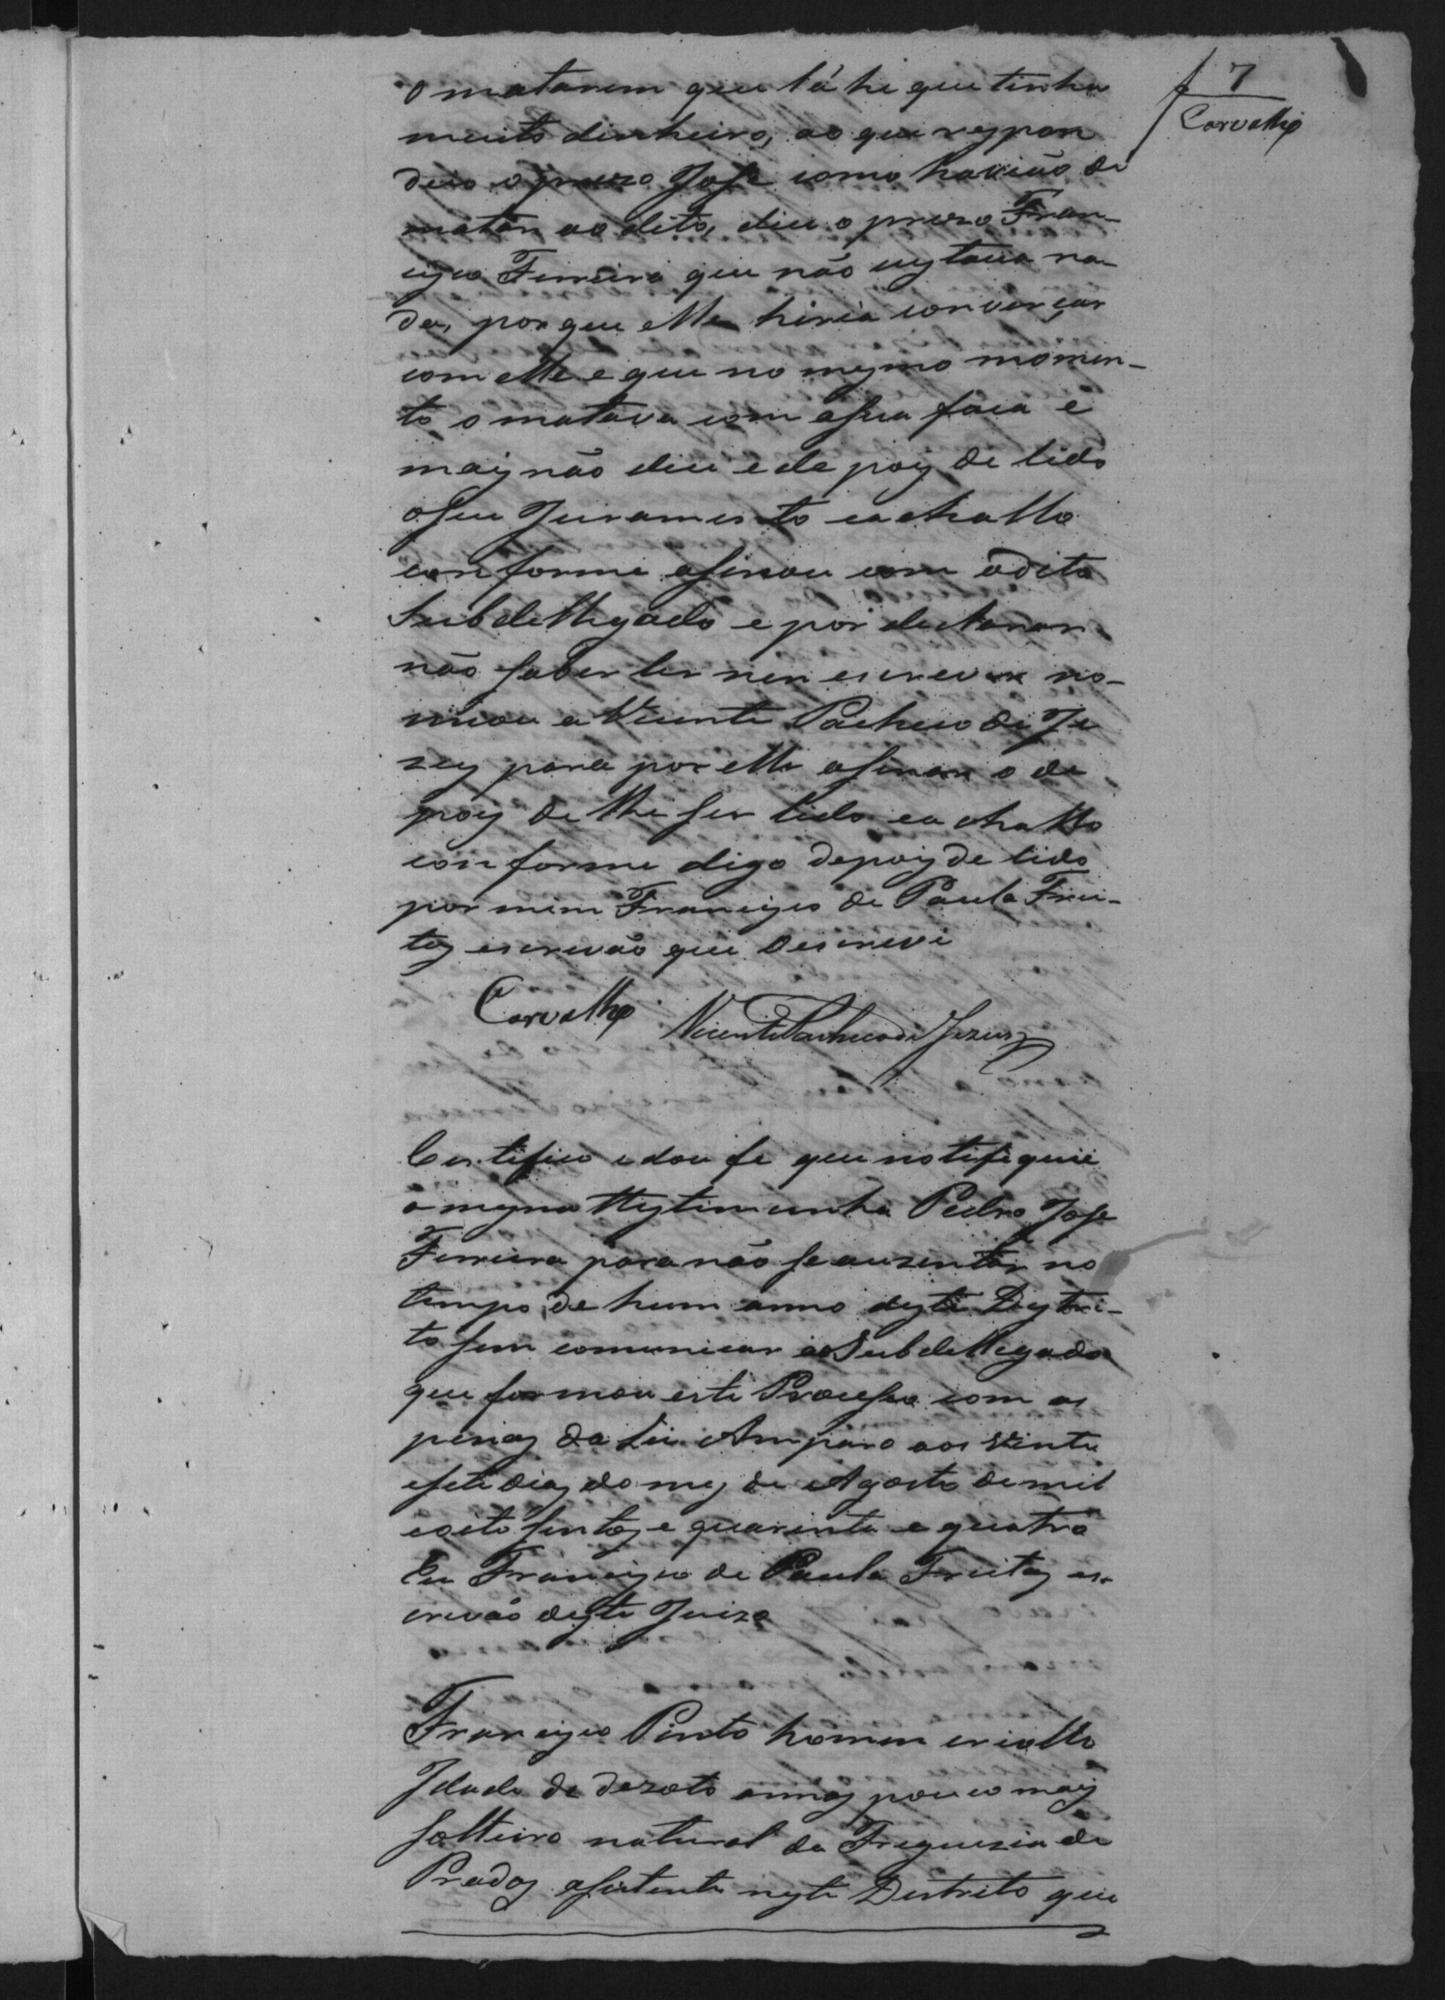 f 7
Carvalho
o matarem que lá hé que tinha
muito dinheiro, ao que respon
deo o prezo José como havião de
matar ao dito, dice o prezo Fran-
cisco Ferreira que não custava na-
da, por que elle hiria convercar
com elle e que no mesmo momen-
to o matava com a sua faca e
mais não dice e depois de lido
o seu Juramento e achallo
conforme asinou com o dito
Subdellegado e por declarar
não saber ler nem escrever no-
miou a Vicente Pacheco de Je
zus para por elle asinar o de
pois de lhe ser lido e achallo
conforme digo depois de lido
por mim Francisco de Paula Frei-
tas escrivão que o escrevi
Carvalho Vicente Pacheco de Jezus
Certifico e dou fe que notifiquei
a mesma testemunha Pedro José
Ferreira para não se auzentar no
tempo de hum anno deste Destri-
to sem comunicar ao Subdellegado
que formou este Processo com as
penas da Lei Amparo aos vinte
e sete dias do mes de Agosto de mil
e oito sentos e quarenta e quatro
Eu Francisco de Paula Freitas es-
crivão deste Juizo
Francisco Pinto homem criollo
Idade de dezoto annos pouco mais
solteiro natural da Freguezia de
Prados asistente neste Destrito que